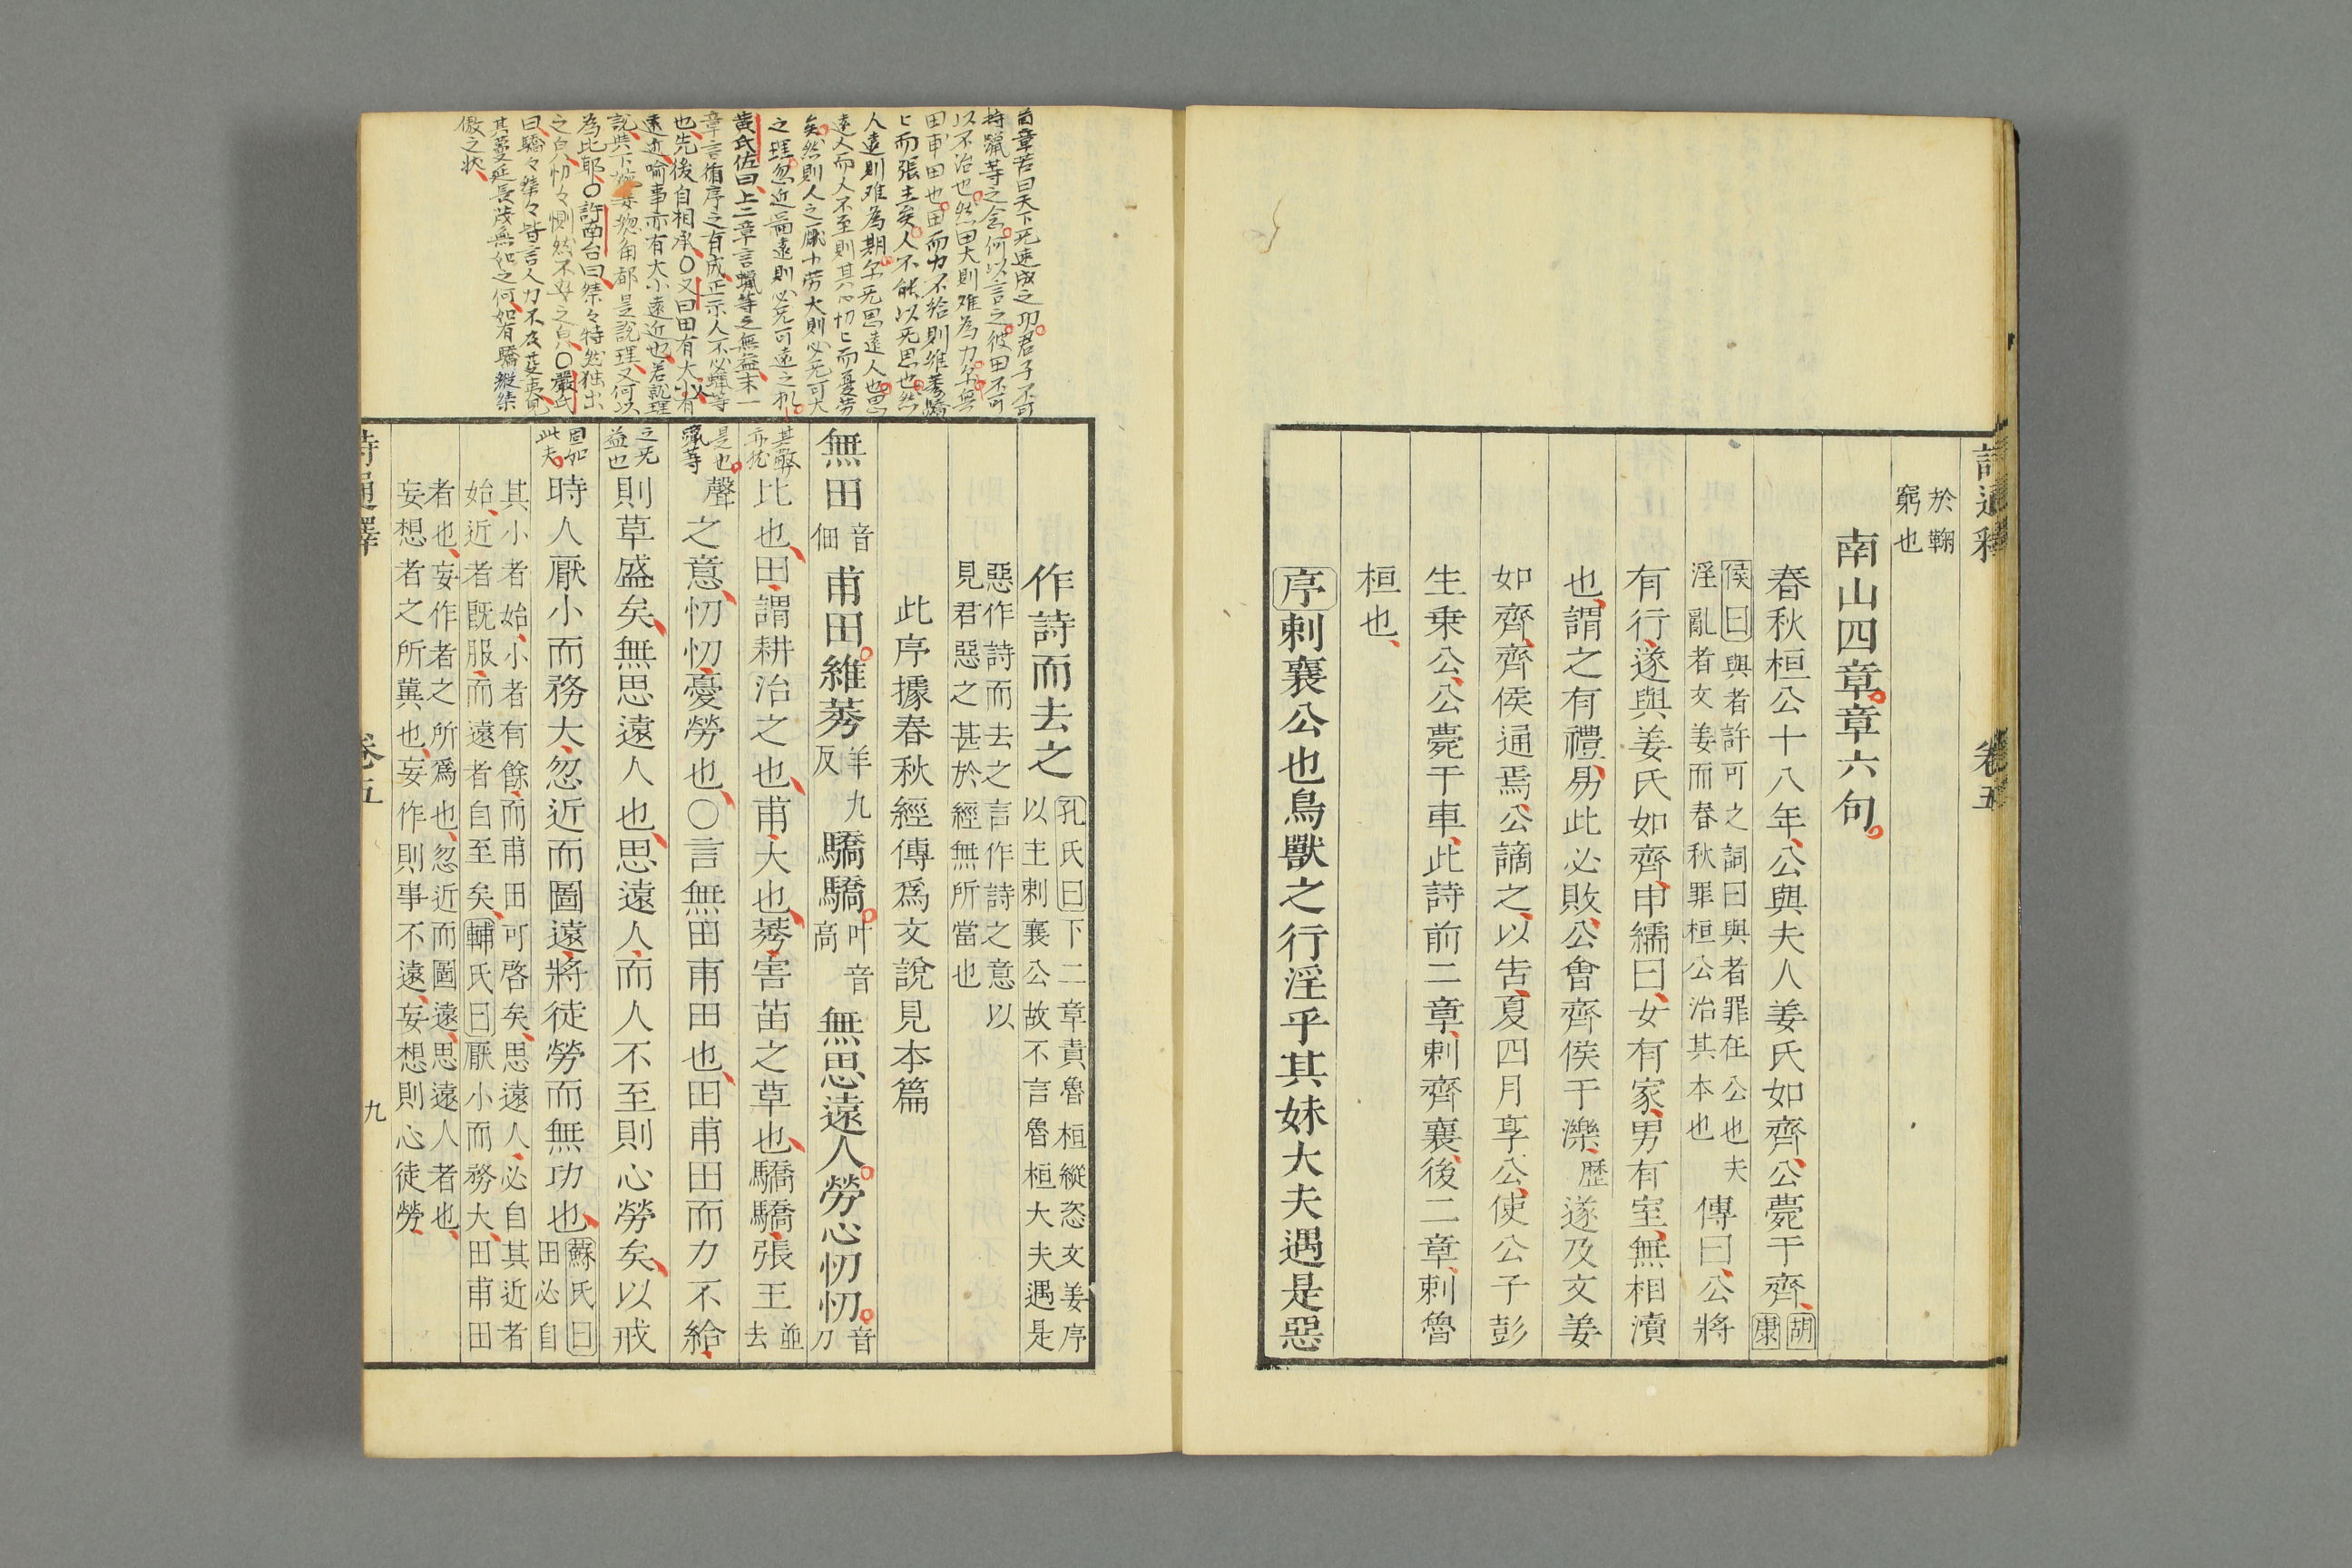 卷五
於鞠
窮也
南山四章章六句
春秋桓公十八年公與夫人姜氏如齊公薨于齊胡
康
侯曰與者許可之詞曰與者罪在公也夫
淫亂者文姜而春秋罪桓公治其本也
傳曰公將
有行遂與姜氏如齊申繻曰女有家男有室無相瀆
也謂之有禮易此必敗公會齊侯于濼歷遂及文姜
如齊齊侯通焉公謫之以告夏四月享公使公子彭
生乗公公薨于車此詩前二章刺齊襄後二章刺魯
桓也
序刺襄公也鳥獸之行淫乎其妹大夫遇是惡
作詩而去之
孔氏曰下二章責魯桓縱恣文姜序
以主刺襄公故不言魯桓大夫遇是
惡作詩而去之言作詩之意以
見君惡之甚於經無所當也
此序據春秋經傳爲文說見本篇
無田音佃甫田維莠羊九反驕驕叶音高無思遠人勞心忉忉音刀
比也田謂耕治之也甫大也莠害苗之草也驕驕張王並去
聲之意忉忉憂勞也○言無田甫田也田甫田而力不給
則草盛矣無思遠人也思遠人而人不至則心勞矣以戒
時人厭小而務大忽近而圖遠將徒勞而無功也
蘇氏曰
田必自
其小者始小者有餘而甫田可啓矣思遠人必自其近者
始近者既服而遠者自至矣輔氏曰厭小而務大田甫田
者也妄作者之所爲也忽近而圖遠思遠人者也
妄想者之所冀也妄作則事不遠妄想則心徒勞
卷五
九
首章若曰天下无速成之功君子不可
持躐等之念何以言之彼田不可
以不治也然田大則难為力矣無
田甫田也田而力不給則維莠驕
〻而張王矣人不能以无思也然
人遠則难為期矣无思遠人也思
遠人而人不至則其心忉〻而憂劳
矣然則人之厭小劳大則必无可大
之理忽近啚遠則必无可遠之机
黄氏佐曰上二章言躐等之無益末一
章言循序之有成正示人不必躐等
也先後自相承○又曰田有大小人有
遠近喻事亦有大小遠近也若說理
說與下婉娈緫角都是說理又何以
為比耶○許南台曰桀々特然独出
之皃忉々惻然不安之皃○嚴氏
曰驕々桀々皆言人力不及芟夷見
其蔓延長茂無如之何如有驕縱桀
傲之狀
其弊
亦犹
是也
躐等
之无
益也
固如
此夫